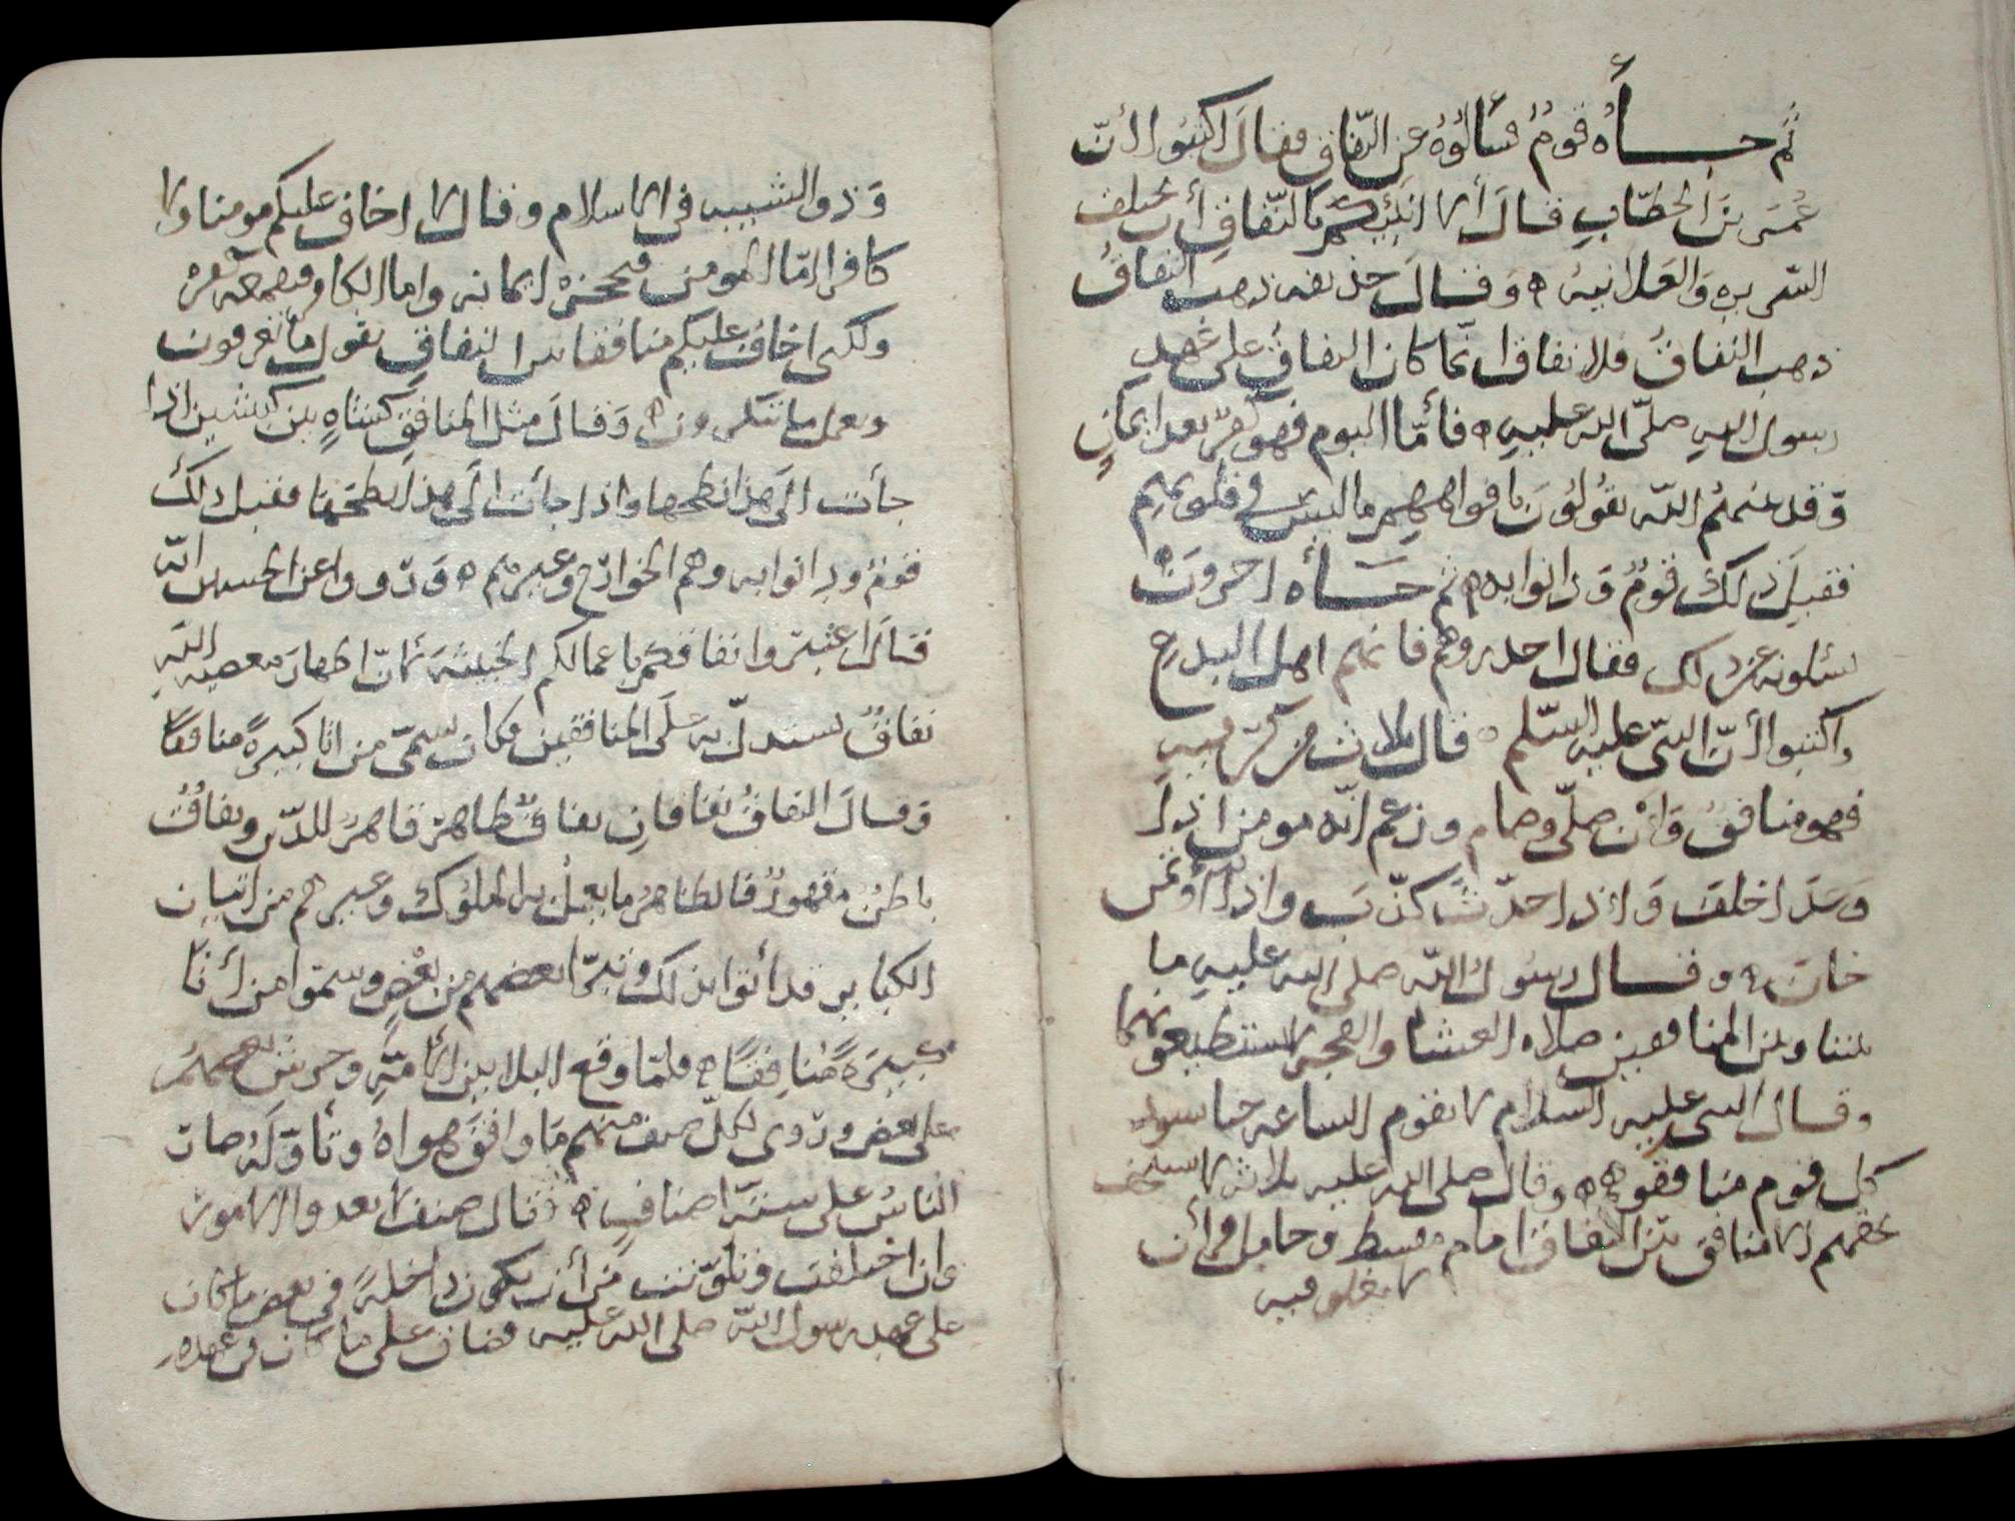 ثم جــأه قومٌ فسألوه عن النّفاق فقال اكتبوا أنّ
عُمَر بن الخطّاب قال ألا أنبئكم بالنّفاق أن تختلف
السّريره والعلانيه ٥ وقال حذيفه ذهب النفاقُ
ذهب النفاقُ فلا نفاق انّما كان النفاق على عهد
رسول اللهِ صلّى الله عليهِ ٥ فأمّا اليوم فهو كفرٌ بعد ايمانٍ
وقد عنهمُ اللّه يقُولُونَ بافواههِم ما ليس في قلوبهم
فقبلَ ذلك قومٌ ودانوا به ٥ ثم جــأه اخرونَ
يسئلونه عن ذلك فقال احذروهم فانهم اهل البدع
واكتبوا أنّ النبىّ عليه السّلم قال ثلاث من كنّ فيه
فهو منافقٌ وان صلّى وصام وزعم انّه مومن اذا
وعَدَ اخلفَ واذا حدّث كذَبَ واذا أوتمن
خان ٥ وقال رسول اللّه صلى الله عليهِ ما
بيننا وبين المنافقين صلاه العشا والفجر لا يستطيعونهما
وقال النبى عليه السلام لا تقوم الساعه حتا يسود
كل قوم منافقوهم ٥ وقال صلى الله عليه ثلاث لا يستخف
بحقهم الا منافق بيّن النفاق امام مقسط وحامل قرأن
لا يغلو فيه
وَذو الشيبه فى الاسلام وقال لا اخاف عليكم مومنا ولا
كافرا امّا المومن فيحجزه ايمانه واما الكافر فيقمعه كفره
ولكنى اخاف عليكم منافقا يسر النفاق يقول ما تعرفون
ويعمل ما تنكرون ٥ وقال مثل المنافق كشاهٍ بين كبشين اذا
جأت الَى هذا نطحها واذا جأت الَى هذا نطحَها فقبل ذلك
قومٌ ودانوا به وهم الخوارج وغيرهم ٥ وَروو عن الحسن انّه
قالَ اعتبروا نفاقكم باعمالكم الخبيثه فانّ اظهار معصيه اللّهِ
نفاقٌ يستدلّ به علَى المنافقين فكان يسمّى من اتا كبيرةً منافقا
وقال النفاقُ نفاقانِ نفاقٌ ظاهرٌ قاهرٌ للدّين ونفاقٌ
باطنٌ مقهورٌ فالظاهرُ ما يعمل به الملوك وغيرهم من اتيان
الكبائر قد أتوا بذلك وتبرّا بعضهم من بعْضٍ وسمّوا من أتا
كبيرَهً مُنافِقًا ٥ فلمّا وقع البلا بين الأمّهِ وحرش بعضهمُ
على بعض وروى لكلّ صنف منهم مَا وافقَ هواهُ وتأوّلهُ صار
النّاسُ على ستّه اصنافٍ ٥ فقال صنف لا يعدو الامور
وان اختلفت وتلوّنت من أن يكون داخلهً فى بعض ما كان
على عهد رسول اللّه صلى اللّه عليه فضاف على ما كان فى عهده